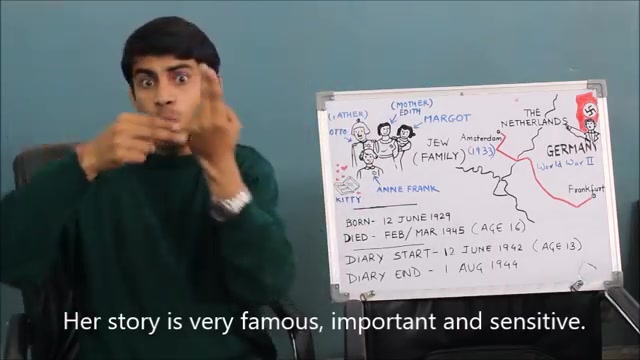 (FATHER)
OTTO
(MOTHER)
EDITH
MARGOT
JEW
(FAMILY)
ANNE FRANK
KITTY
THE
NETHERLANDS
Amsterdam
(1933)
GERMANY
World War II
Frankfurt
BORN- 12 JUNE 1929
DIED - FEB/MAR 1945 (AGE 16)
DIARY START - 12 JUNE 1942 (AGE 13)
DIARY END - 1 AUG 1944
Her story is very famous, important and sensitive.